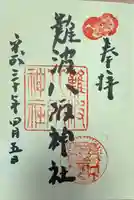 奉拝
難波八阪神社
令和
年四月五日